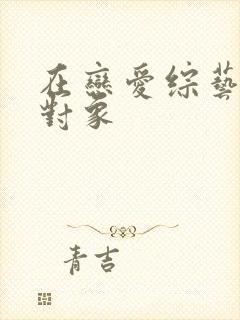 在戀愛綜藝
對象
青吉